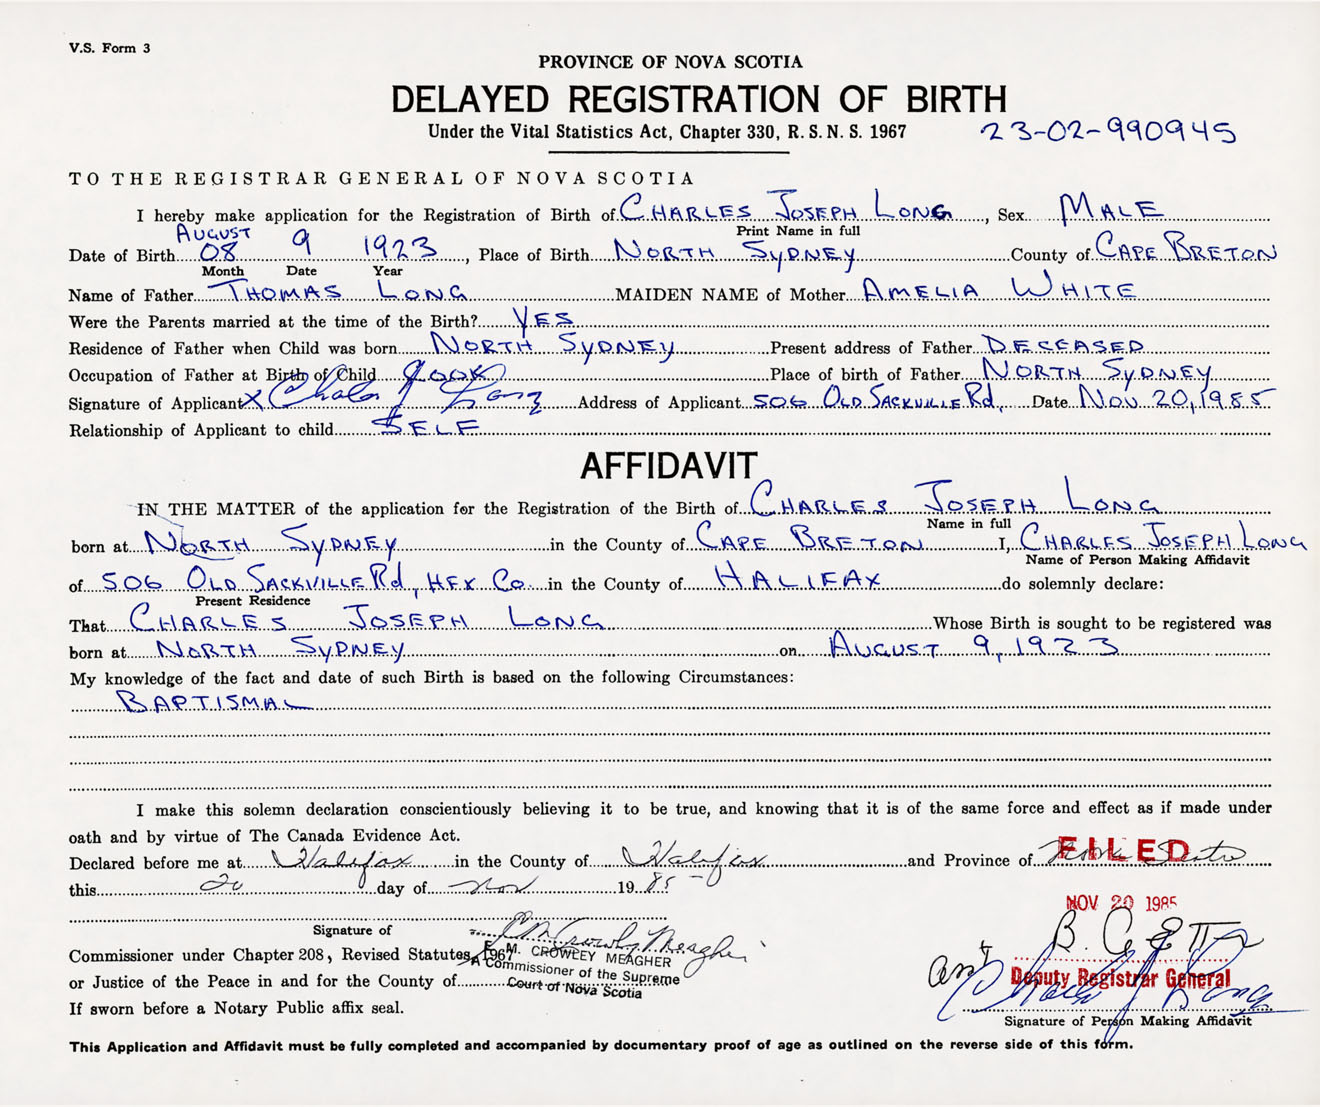 V.S. Form 3
PROVINCE OF NOVA SCOTIA
DELAYED REGISTRATION OF BIRTH
Under the Vital Statistics Act, Chapter 330, R. S. N. S. 1967 23-02-990945
TO THE REGISTRAR GENERAL OF NOVA SCOTIA
I hereby make application for the Registration of Birth of CHARLES JOSEPH LONG, Sex MALE
Print Name in full
AUGUST
Date of Birth 08 9 1923, Place of Birth NORTH SYDNEY County of CAPE BRETON
Month Date Year
Name of Father THOMAS LONG MAIDEN NAME of Mother AMELIA WHITE
Were the Parents married at the time of the Birth? YES
Residence of Father when Child was born NORTH SYDNEY Present address of Father DECEASED
Occupation of Father at Birth of Child COOK Place of birth of Father NORTH SYDNEY
Signature of Applicant X Charles J Long Address of Applicant 506 OLD SACKVILLE Rd, Date NOV 20, 1985
Relationship of Applicant to child SELF
AFFIDAVIT
IN THE MATTER of the application for the Registration of the Birth of CHARLES JOSEPH LONG
Name in full
born at NORTH SYDNEY in the County of CAPE BRETON I, CHARLES JOSEPH LONG
Name of Person Making Affidavit
of 506 OLD SACKVILLE Rd, HFX Co. in the County of HALIFAX do solemnly declare:
Present Residence
That CHARLES JOSEPH LONG Whose Birth is sought to be registered was
born at NORTH SYDNEY on AUGUST 9, 1923
My knowledge of the fact and date of such Birth is based on the following Circumstances:
BAPTISMAL
I make this solemn declaration conscientiously believing it to be true, and knowing that it is of the same force and effect as if made under
oath and by virtue of The Canada Evidence Act.
Declared before me at Halifax in the County of Halifax and Province of Nova Scotia
FILED
this 20 day of Nov 1985
NOV 20 1985
Signature of
Commissioner under Chapter 208, Revised Statutes, 1967
E. M. CROWLEY MEAGHER
A Commissioner of the Supreme
Court of Nova Scotia
or Justice of the Peace in and for the County of
If sworn before a Notary Public affix seal.
Deputy Registrar General
Charles J Long
Signature of Person Making Affidavit
This Application and Affidavit must be fully completed and accompanied by documentary proof of age as outlined on the reverse side of this form.